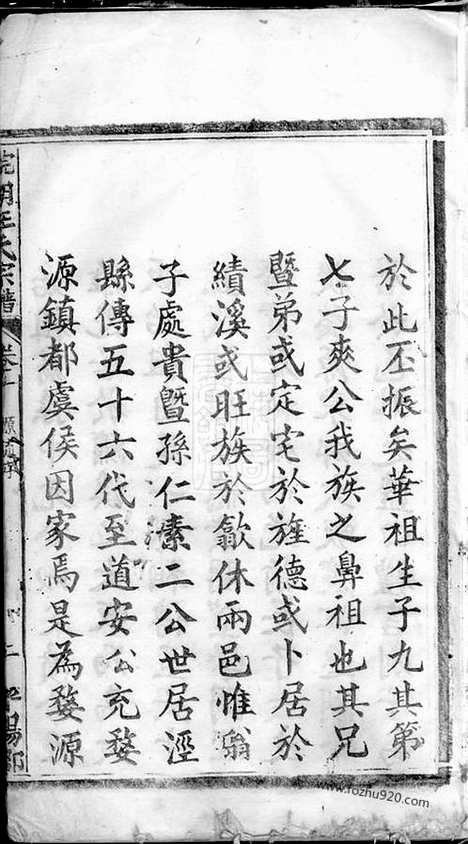 於此丕振矣華祖生子九其第
七子爽公我族之鼻祖也其兄
暨弟或定宅於旌德或卜居於
績溪或旺族於歙休兩邑惟翁
子處貴暨孫仁素二公世居涇
縣傳五十六代至道安公充婺
源鎮都虞侯因家焉是為婺源
汪氏宗譜
卷
www.fozhu920.com